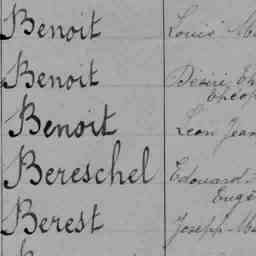 Benoit Louis
Benoit Désiré
Benoit Léon Jean
Bereschel Edouard
Eugè
Berest Joseph Ma